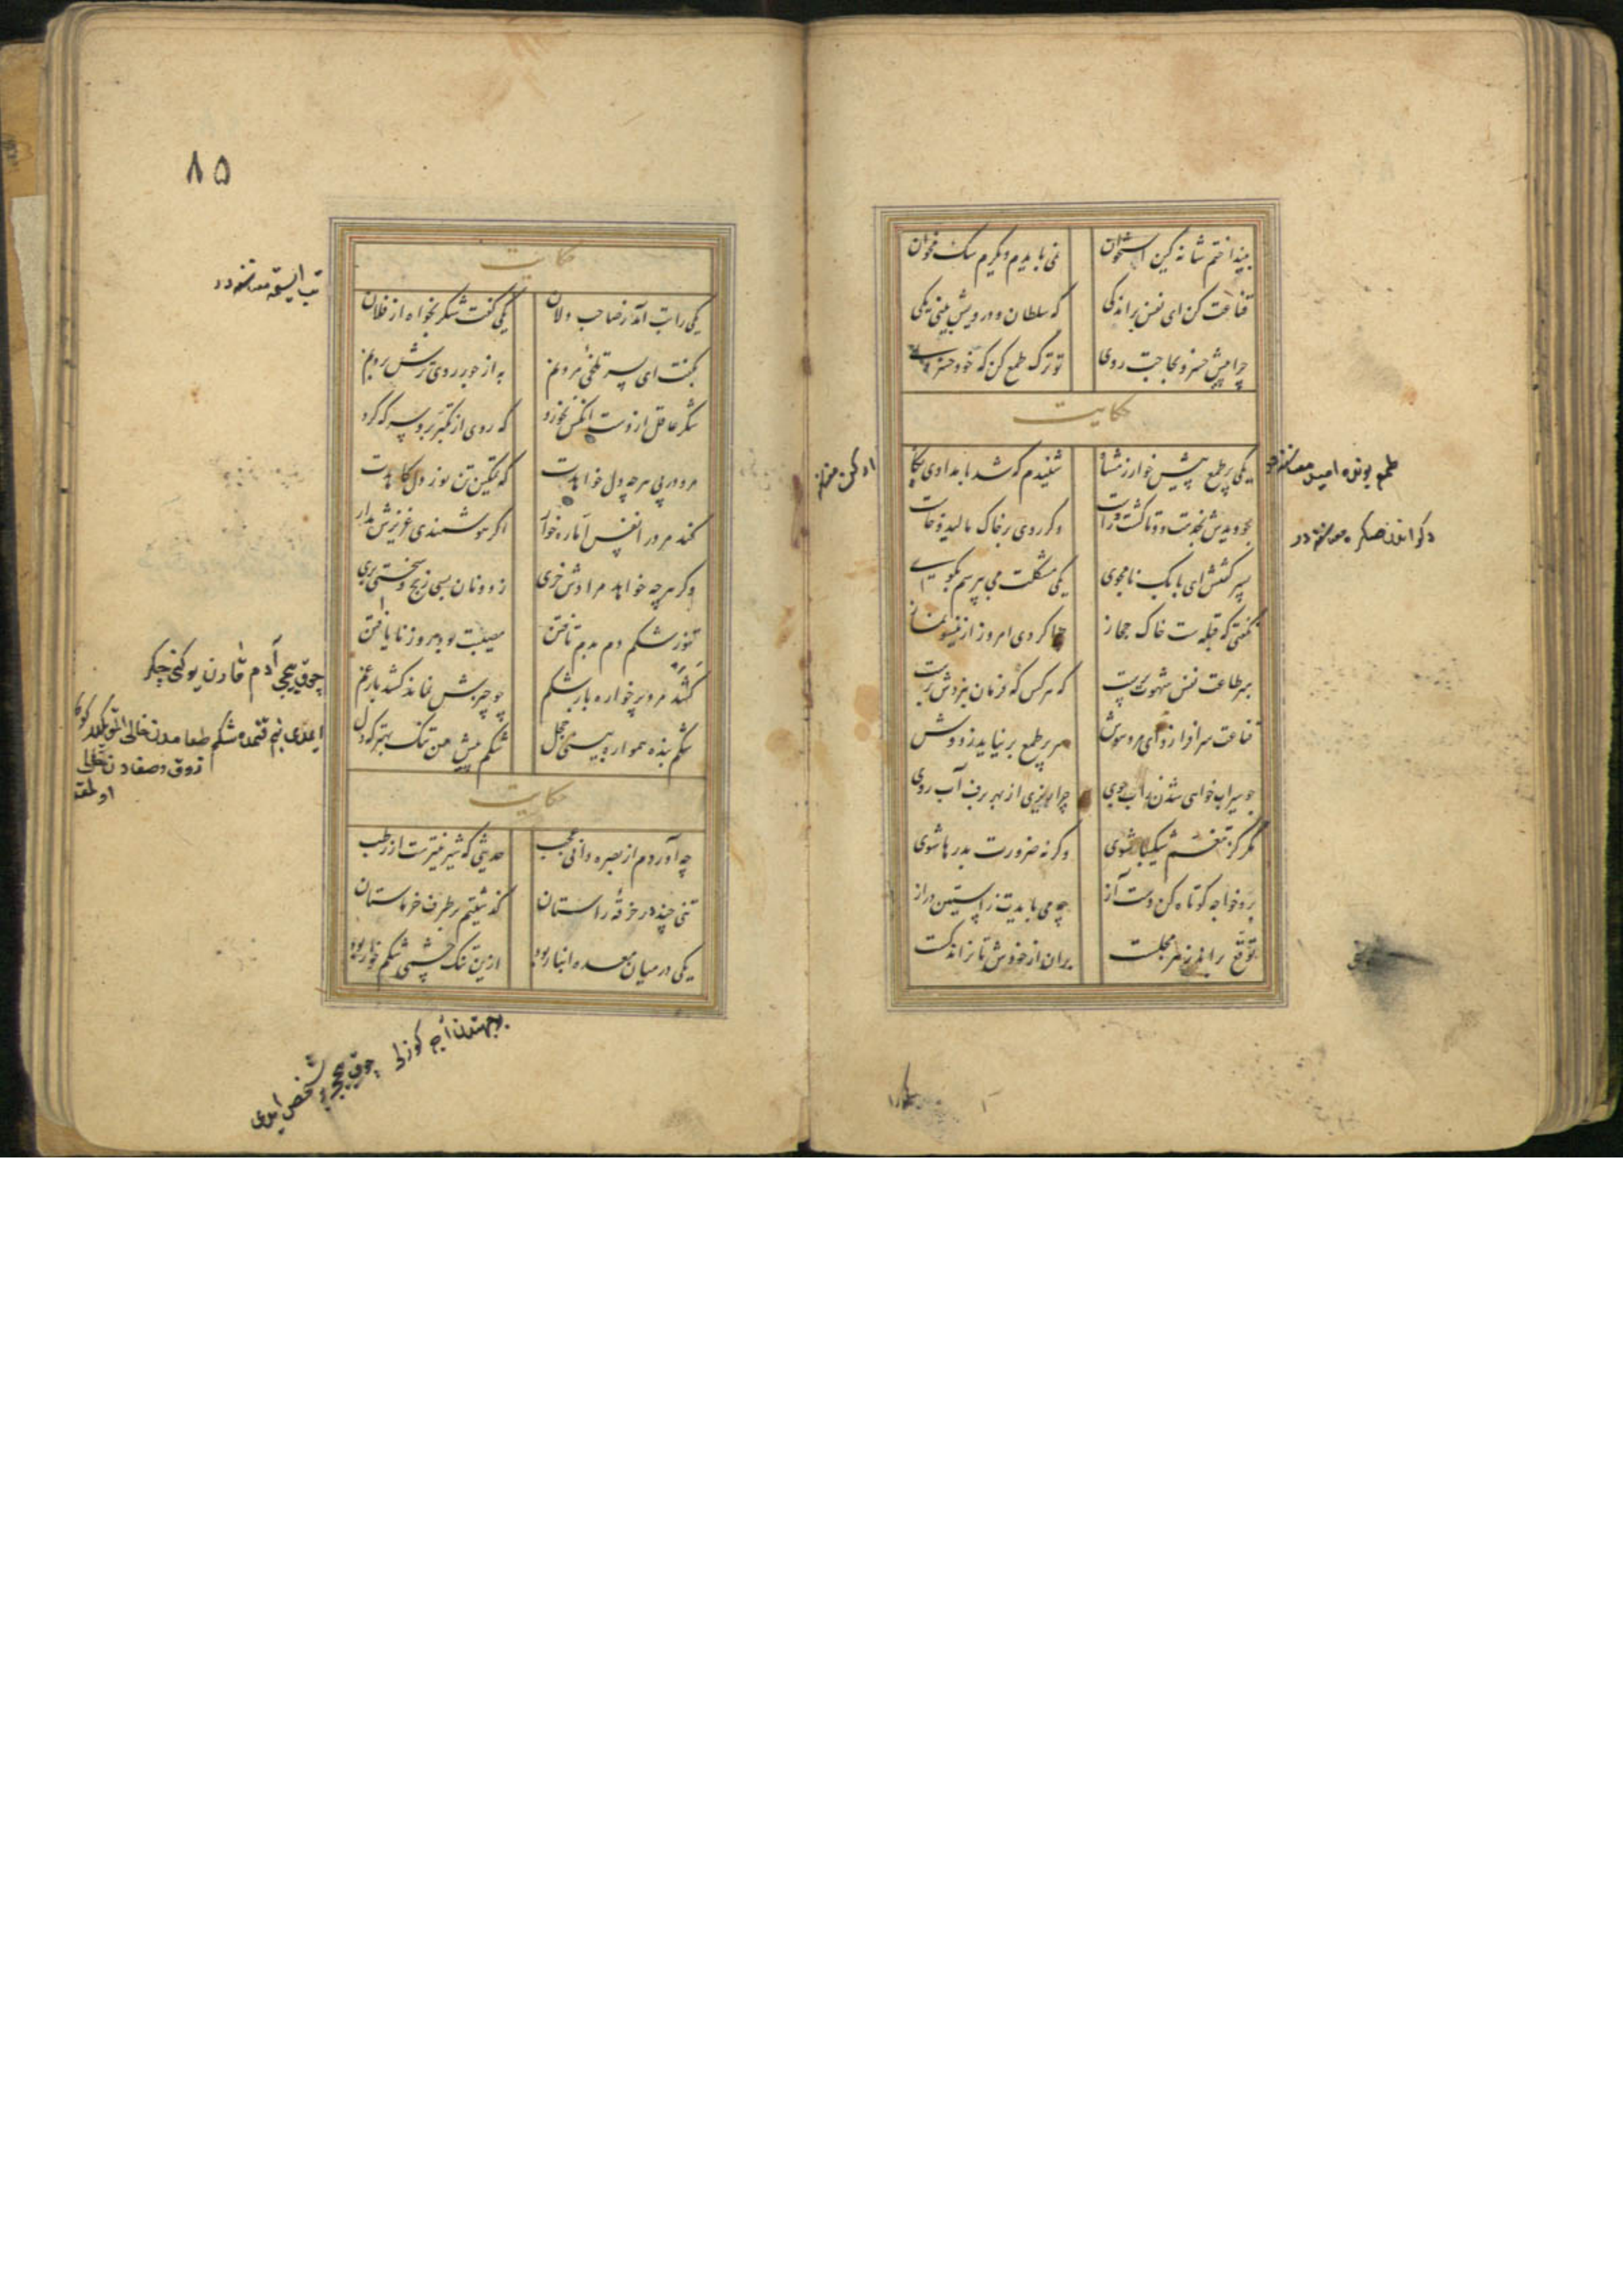 بینداختم شانه کین استخوان نمی بایدم دیگرم سک مخوان
قناعت کن ای نفس بر اندکی که سلطان و درویش بینی یکی
چرا پیش خسرو بحاجت روی تو ترک طمع کن که خود خسروی
حکایت
یکی پر طمع پیش خوارزمشاه شنیدم که شد بامدادی پکاه
چو دیدش بخدمت دوتا کشت و راست دکر روی بر خاک مالید و خاست
پسر کفتش ای بابک نامجوی یکی مشکلت می پرسم بکوی
نکفتی که قبله ست خاک حجاز چرا کردی امروز ازین سو نماز
مبر طاعت نفس شهوت پرست که هر کس که فرمان نبردش برست
قناعت سرافرازد ای مرد هوش سر پر طمع بر نیاید ز دوش
چو سیراب خواهی شدن ز آب جوی چرا ریزی از بهر برف آب روی
مکر کز تنعم شکیبا شوی وکرنه ضرورت بدرها شوی
برو خواجه کوتاه کن دست آز چه می بایدت ز آستین دراز
توقع براند ز هر مجلست بران از خودش تا نراند کست
طمع
معناسنه در
٨۵
حکایت
یکی را تب آمد ز صاحب دلان یکی کفت شکر بخواه از فلان
بکفت ای پسر تلخی مردنم به از جور روی ترش بردنم
شکر عاقل از دست آنکس نخورد که روی از تکبر برو سرکه کرد
مرو در پی هر چه دل خواهدت که تمکین تن نور دل کاهدت
کند مرد را نفس اماره خوار اکر هوشمندی عزیزش مدار
وکر هرچه خواهد مرادش خری ز دونان بسی رنج و سختی بری
تنور شکم دم بدم تافتن مصیبت بود روز نایافتن
کشد مرد پرخواره بار شکم چو چیزش نماند کشد بار غم
شکم بنده همواره بینی خجل شکم پیش من تنک بهتر که دل
حکایت
چه آوردم از بصره دانی عجب حدیثی که شیرینترست از رطب
تنی چند در خرقه راستان کذشتیم بر طرف خرماستان
یکی در میان معده انبار بود ازین تنک چشمی شکم خوار بود